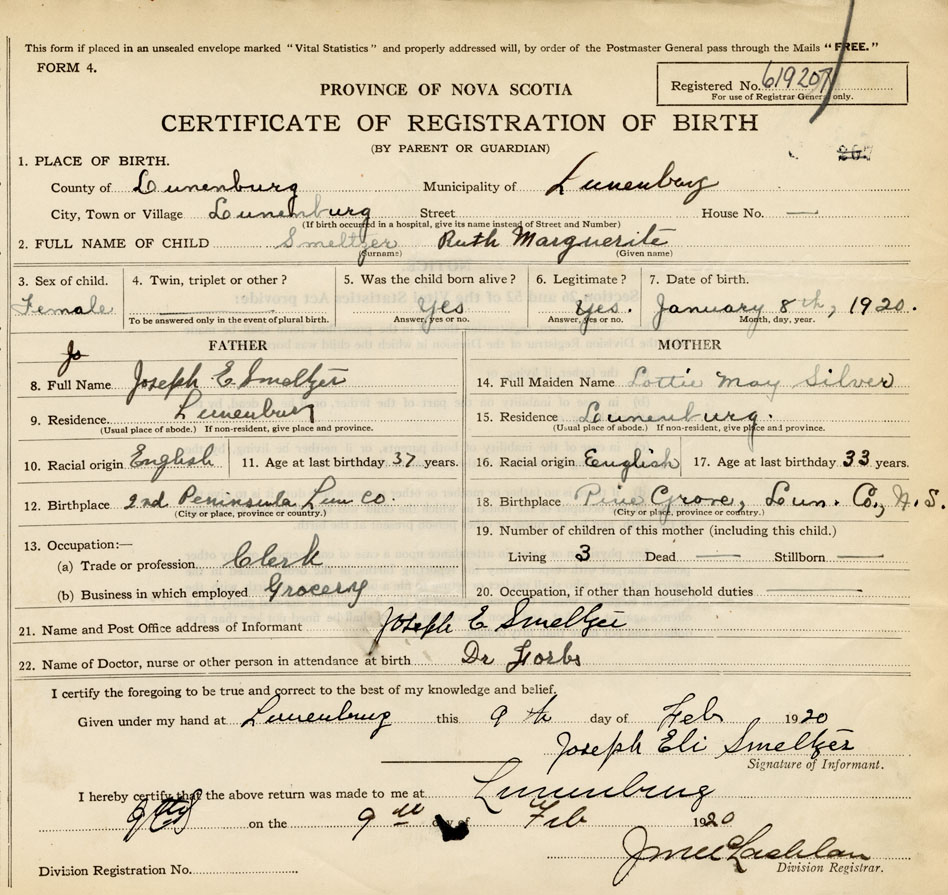 This form if placed in an unsealed envelope marked "Vital Statistics" and properly addressed will, by order of the Postmaster General pass through the Mails "FREE."
FORM 4.
Registered No. 619207
For use of Registrar General only.
PROVINCE OF NOVA SCOTIA
CERTIFICATE OF REGISTRATION OF BIRTH
(BY PARENT OR GUARDIAN)
207
1. PLACE OF BIRTH.
County of Lunenburg Municipality of Lunenburg
City, Town or Village Lunenburg Street House No. —
(If birth occurred in a hospital, give its name instead of Street and Number)
2. FULL NAME OF CHILD Smeltzer Ruth Marguerite
(Surname) (Given name)
3. Sex of child. 4. Twin, triplet or other? 5. Was the child born alive? 6. Legitimate? 7. Date of birth.
Female Yes Yes. January 8th, 1920.
To be answered only in the event of plural birth. Answer, yes or no. Answer, yes or no. Month, day, year.
FATHER
Jo
8. Full Name Joseph E. Smeltzer
9. Residence Lunenburg
(Usual place of abode.) If non-resident, give place and province.
10. Racial origin English 11. Age at last birthday 37 years.
12. Birthplace 2nd Peninsula Lun Co.
(City or place, province or country.)
13. Occupation:—
(a) Trade or profession Clerk
(b) Business in which employed Grocery
MOTHER
14. Full Maiden Name Lottie May Silver
15. Residence Lunenburg.
(Usual place of abode.) If non-resident, give place and province.
16. Racial origin English 17. Age at last birthday 33 years.
18. Birthplace Pine Grove, Lun. Co., N.S.
(City or place, province or country.)
19. Number of children of this mother (including this child.)
Living 3 Dead — Stillborn —
20. Occupation, if other than household duties —
21. Name and Post Office address of Informant Joseph E Smeltzer
22. Name of Doctor, nurse or other person in attendance at birth Dr Forbs
I certify the foregoing to be true and correct to the best of my knowledge and belief.
Given under my hand at Lunenburg this 9th day of Feb 1920
Joseph Eli Smeltzer
Signature of Informant.
I hereby certify that the above return was made to me at Lunenburg
on the 9th day of Feb 1920
J McLachlan
Division Registrar.
Division Registration No.